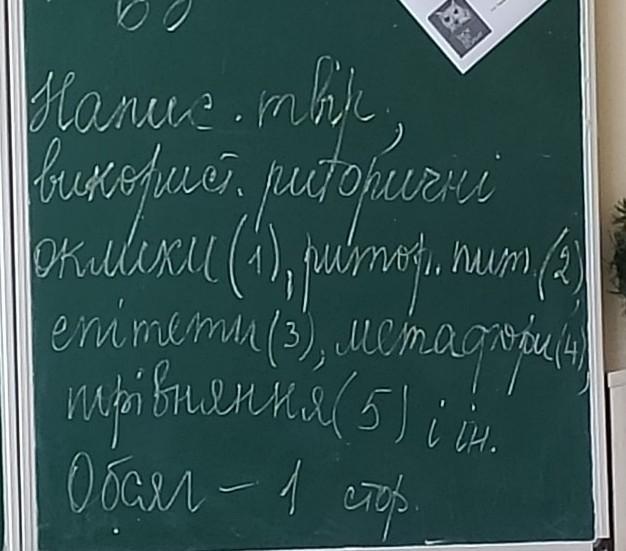 Напис. твір,
використ. риторичні
оклики (1), ритор. пит. (2)
епітети (3), метафори (4),
порівняння (5) і ін.
Обсяг – 1 стор.